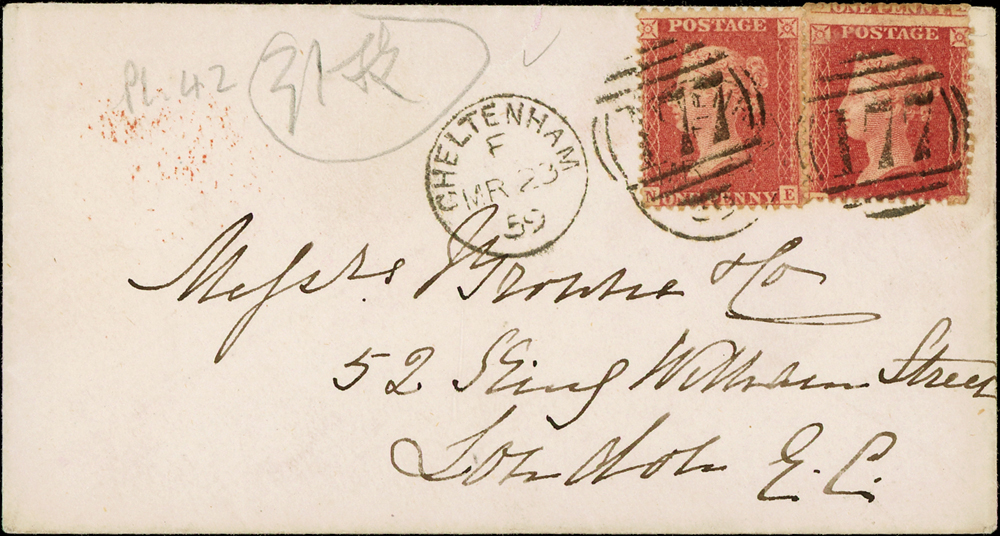 ONE PENNY
POSTAGE
POSTAGE
177
177
N ONE PENNY E
Pl. 42
CHELTENHAM
F
MR 23
59
Messrs Browne & Co
52 King William Street
London E.C.